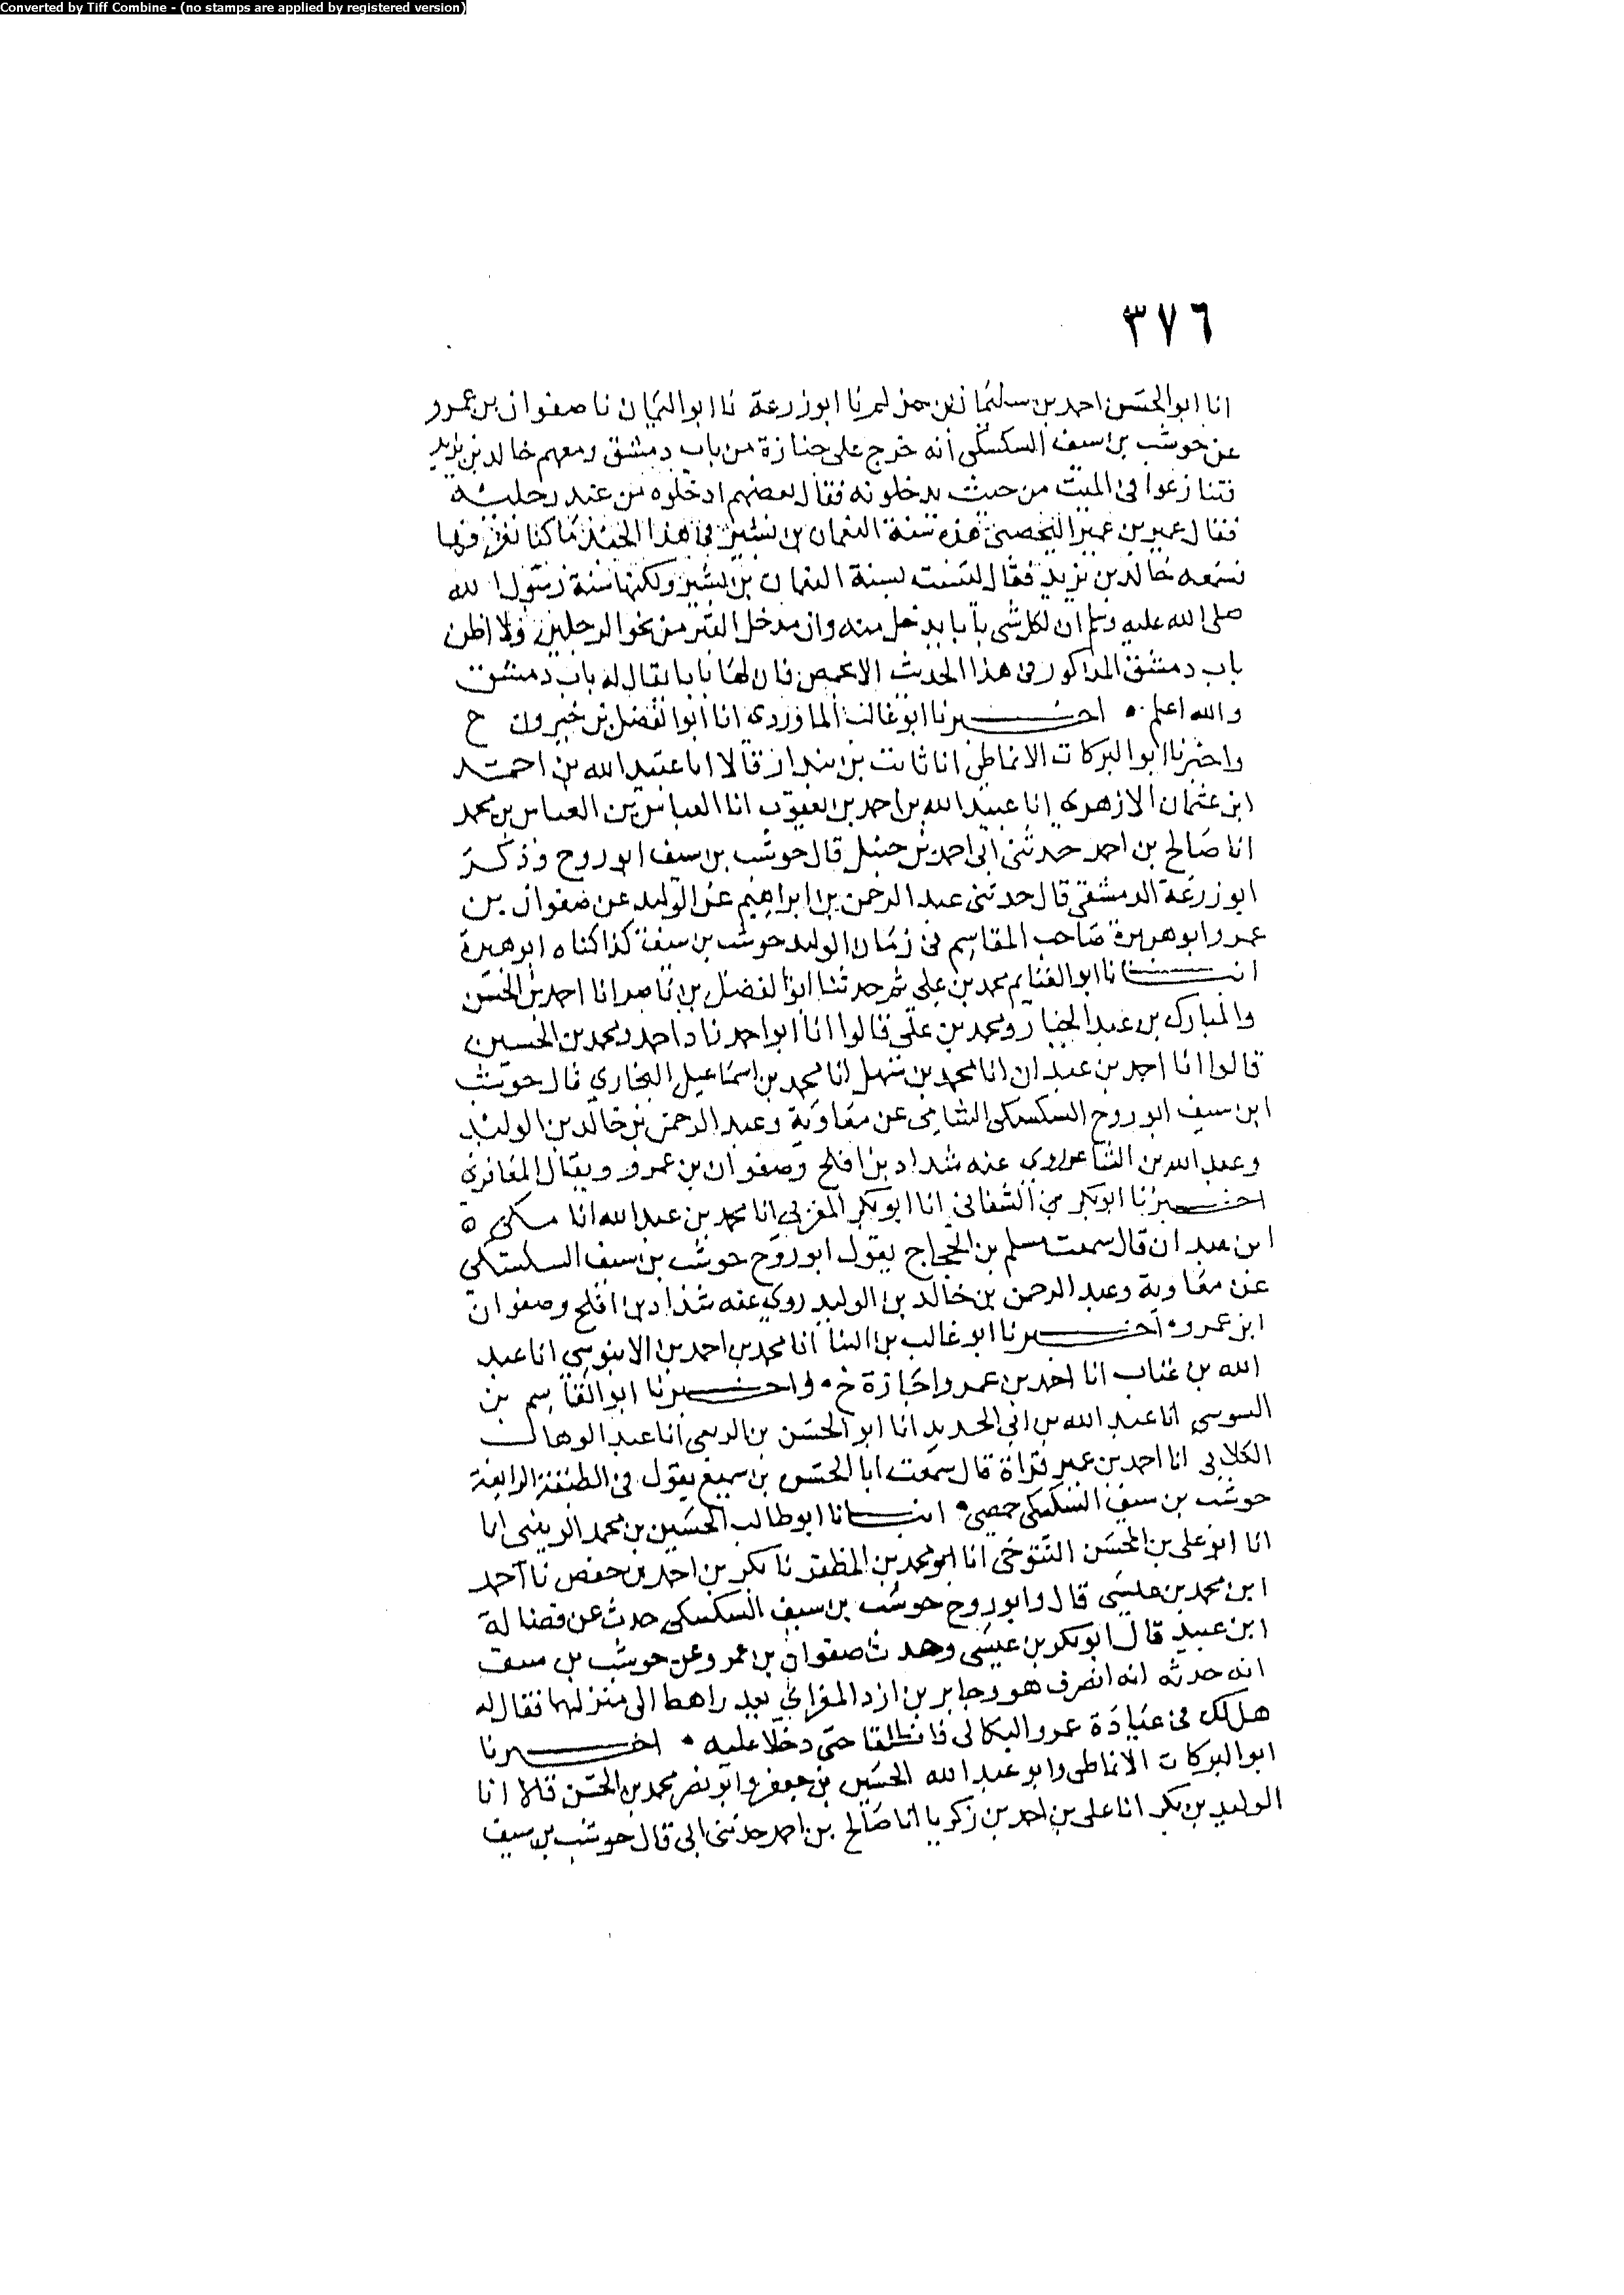 Converted by Tiff Combine - (no stamps are applied by registered version)
٣٧٦
انا ابو الحسن احمد بن سليمان بن حذلم نا ابو زرعة نا ابو اليمان نا صفوان بن عمرو
عن حوشب بن سيف السكسكي أنه خرج على جنازة من باب دمشق ومعهم خالد بن يزيد
فتنازعوا في الميت من حيث يدخلونه فقال بعضهم ادخلوه من عند رجليه
فقال عمير بن عمير اليحصبي هذه سنة النعمان بن بشير في هذا الجند ما كنا نعرفها
فسمعه خالد بن يزيد فقال ليست بسنة النعمان بن بشير ولكنها سنة رسول الله
صلى الله عليه وسلم ان لكل شي بابا يدخل منه وان مدخل القبر من نحو الرجلين ولا اظن
باب دمشق المذكور في هذا الحديث الا بحمص فان لها بابا يقال له باب دمشق
والله اعلم ٠ اخبرنا ابو غالب الماوردي انا ابو الفضل بن خيرون ح
واخبرنا ابو البركات الانماطي انا ثابت بن بندار قالا انا عبيد الله بن احمد
ابن عثمان الازهري انا عبيد الله بن احمد بن يعقوب انا العباس بن العباس بن محمد
انا صالح بن احمد حدثني ابي احمد بن حنبل قال حوشب بن سيف ابو روح وذكر
ابو زرعة الدمشقي قال حدثني عبد الرحمن بن ابراهيم عن الوليد عن صفوان بن
عمرو ابو هريرة صاحب المقاسم في زمان الوليد حوشب بن سيف كذا كناه ابو هريرة
انبانا ابو الغنايم محمد بن علي ثم حدثنا ابو الفضل بن ناصر انا احمد بن الحسن
والمبارك بن عبد الجبار ومحمد بن علي قالوا انا ابو احمد زاد احمد ومحمد بن الحسين
قالوا انا احمد بن عبدان انا محمد بن سهل انا محمد بن اسماعيل البخاري قال حوشب
ابن سيف ابو روح السكسكي الشامي عن معاوية وعبد الرحمن بن خالد بن الوليد
وعبد الله بن الشاعر روي عنه شداد بن افلح وصفوان بن عمرو ويقال المعافري
اخبرنا ابو بكر بن الشقاني انا ابو بكر المغربي انا محمد بن عبد الله انا مكي ه
ابن عبدان قال سمعت مسلم بن الحجاج يقول ابو روح حوشب بن سيف السكسكي
عن معاوية وعبد الرحمن بن خالد بن الوليد روي عنه شداد بن افلح وصفوان
ابن عمرو ٠ اخبرنا ابو غالب بن البنا انا محمد بن احمد بن الابنوسي انا عبد
الله بن عتاب انا احمد بن عمير اجازة ح ٠ واخبرنا ابو القاسم بن
السوسي انا عبد الله بن ابي الحديد انا ابو الحسن بن الربعي انا عبد الوهاب
الكلابي انا احمد بن عمير قراة قال سمعت ابا الحسن بن سميع يقول في الطبقة الرابعة
حوشب بن سيف السكسكي حمصي ٠ انبانا ابو طالب الحسين بن محمد الزينبي انا
انا ابو علي بن المحسن التنوخي انا ابو محمد بن المظفر نا بكر بن احمد بن حفص نا احمد
ابن محمد بن عيسى قال وابو روح حوشب بن سيف السكسكي حدث عن فضالة
ابن عبيد قال ابو بكر بن عيسى وحدث صفوان بن عمرو عن حوشب بن سيف
انه حدثه انه انصرف هو وجابر بن ازد المقراي بعد راهط الى منزلهما فقال له
هل لك في عيادة عمرو البكالي فانطلقا حتى دخلا عليه ٠ اخبرنا
ابو البركات الانماطي وابو عبد الله الحسين بن جعفر وابو نصر محمد بن الحسن قالا انا
الوليد بن بكر انا علي بن احمد بن زكريا انا صالح بن احمد حدثني ابي قال حوشب بن سيف